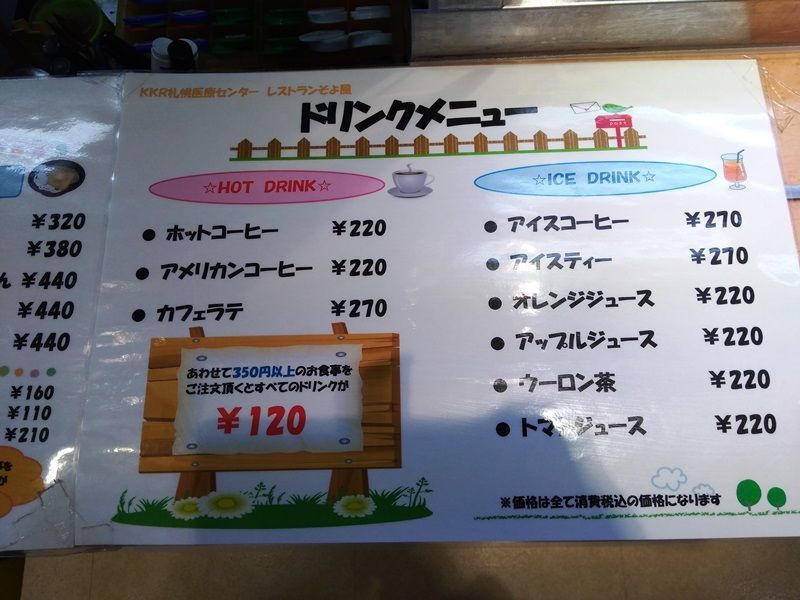 KKR札幌医療センター レストランそよ風
ドリンクメニュー
post
☆HOT DRINK☆
● ホットコーヒー ¥220
● アメリカンコーヒー ¥220
● カフェラテ ¥270
あわせて350円以上のお食事を
ご注文頂くとすべてのドリンクが
¥120
☆ICE DRINK☆
● アイスコーヒー ¥270
● アイスティー ¥270
● オレンジジュース ¥220
● アップルジュース ¥220
● ウーロン茶 ¥220
● トマトジュース ¥220
※価格は全て消費税込の価格になります
¥320
¥380
ん ¥440
¥440
¥440
¥160
¥110
¥210